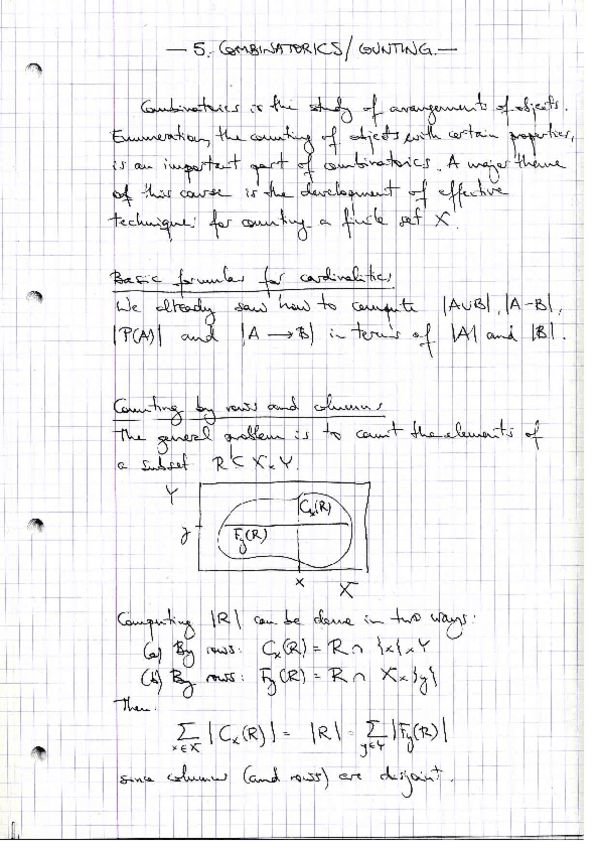 — 5. COMBINATORICS/COUNTING. —
Combinatorics is the study of arrangements of objects.
Enumeration, the counting of objects with certain properties,
is an important part of combinatorics. A major theme
of this course is the development of effective
techniques for counting a finite set X.
Basic formulas for cardinalities
We already saw how to compute |A∪B|, |A-B|,
|P(A)| and |A → B| in terms of |A| and |B|.
Counting by rows and columns
The general problem is to count the elements of
a subset R ⊂ X × Y.
Y
Cx(R)
y
Fy(R)
x
X
Computing |R| can be done in two ways:
(a) By rows: Cx(R) = R ∩ {x} × Y
(b) By rows: Fy(R) = R ∩ X × {y}
Then:
∑x∈X |Cx(R)| = |R| = ∑y∈Y |Fy(R)|
since columns (and rows) are disjoint.